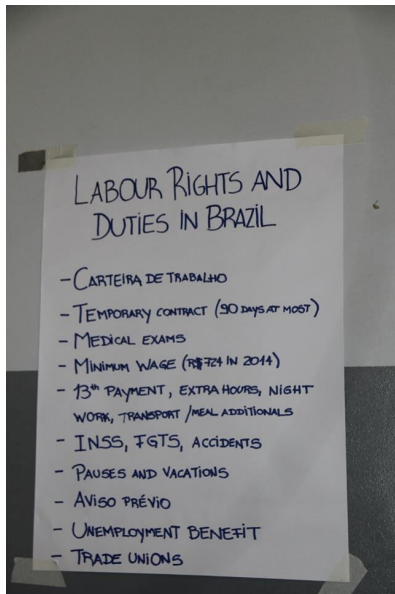 LABOUR RIGHTS AND
DUTIES IN BRAZIL
- CARTEIRA DE TRABALHO
- TEMPORARY CONTRACT (90 DAYS AT MOST)
- MEDICAL EXAMS
- MINIMUM WAGE (R$724 IN 2014)
- 13th PAYMENT, EXTRA HOURS, NIGHT
WORK, TRANSPORT/MEAL ADDITIONALS
- INSS, FGTS, ACCIDENTS
- PAUSES AND VACATIONS
- AVISO PRÉVIO
- UNEMPLOYMENT BENEFIT
- TRADE UNIONS